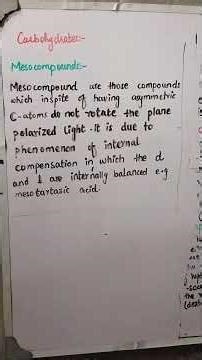 Carbohydrates:-
Mesocompounds:-
Mesocompound are those compounds
which inspite of having asymmetric
C-atoms do not rotate the plane
polarized light. It is due to
phenomenon of internal
compensation in which the d
and l are internally balanced e.g
mesotartaric acid.